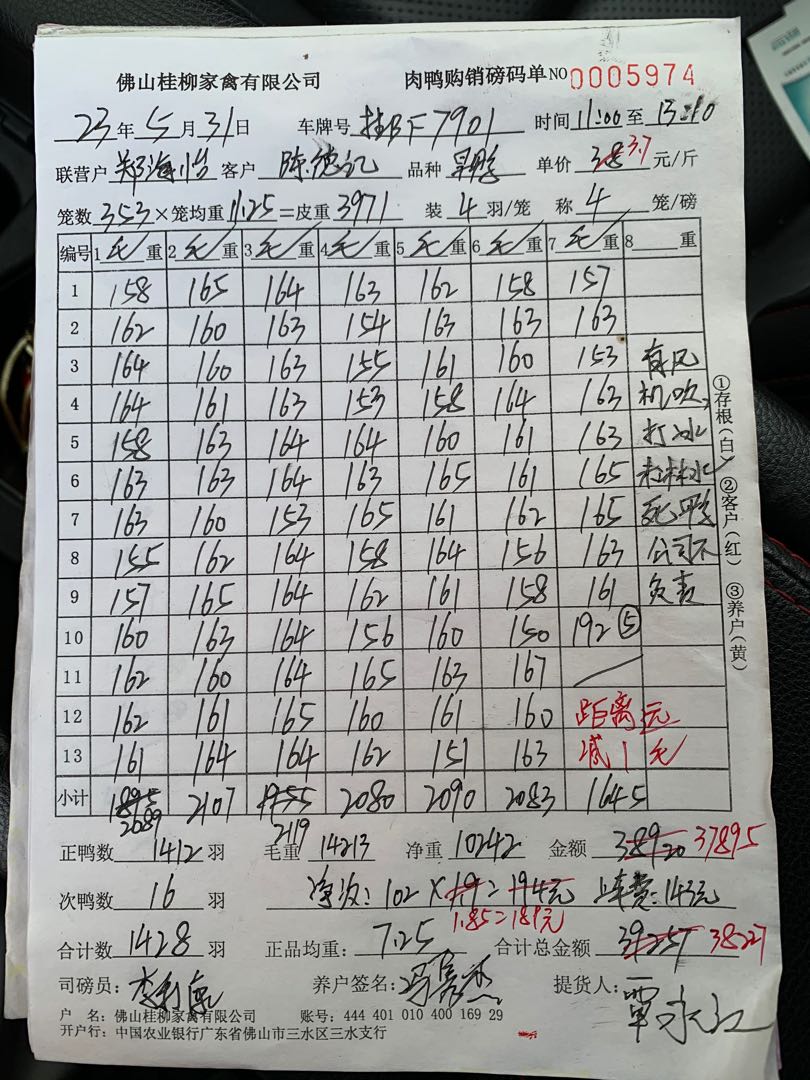 佛山桂柳家禽有限公司 肉鸭购销磅码单 NO 0005974
23年5月31日 车牌号 桂BF7901 时间11:00至13:10
联营户 郑海怡 客户 陈德记 品种 单价 3.8 3.7 元/斤
笼数353×笼均重11.25=皮重3971 装4羽/笼 称4笼/磅
编号 1毛重 2毛重 3毛重 4毛重 5毛重 6毛重 7毛重 8 重
1 158 165 164 163 162 158 157
2 162 160 163 154 163 163 163
3 164 160 163 155 161 160 153 有风
4 164 161 163 153 158 164 163 机吹,
5 158 163 164 164 160 161 163 打冰
6 163 163 164 163 165 161 165 水
7 163 160 153 165 161 162 165 死鸭
8 155 162 164 158 164 156 163 公司不
9 157 165 164 162 161 158 161 负责
10 160 163 164 156 160 150 192⑤
11 162 160 164 165 163 167
12 162 161 165 160 161 160 距离远
13 161 164 164 162 151 163 减1毛
小计 1895 2107 1955 2080 2090 2083 1645
2089 2119
正鸭数1412羽 毛重14213 净重10242 金额38920 37895
次鸭数16羽 净次:102×1.9=194元 上车费:143元
1.85=189元
合计数1428羽 正品均重:7.25 合计总金额39257 38227
司磅员: 养户签名: 提货人:覃永江
户 名:佛山桂柳家禽有限公司 账号:444 401 010 400 169 29
开户行:中国农业银行广东省佛山市三水区三水支行
①存根(白)②客户(红)③养户(黄)